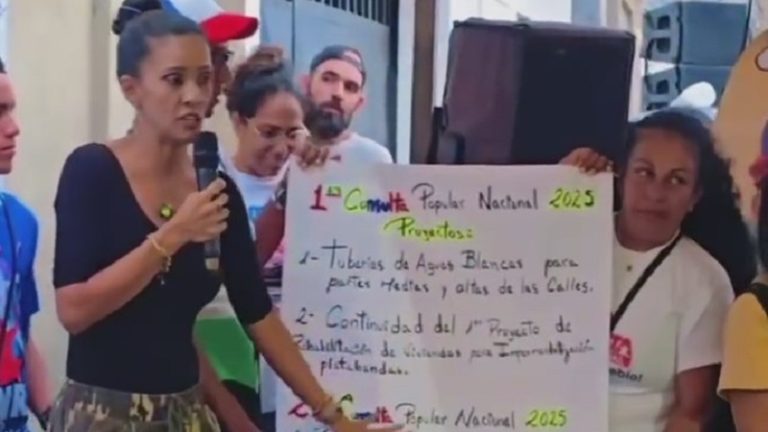 1ra Consulta Popular Nacional 2025
Proyectos:
1- Tuberias de Aguas Blancas para
partes Medias y altas de las Calles.
2- Continuidad del 1er Proyecto de
Rehabilitación de viviendas para Impermeabilización
platabandas.
2da Consulta Popular Nacional 2025